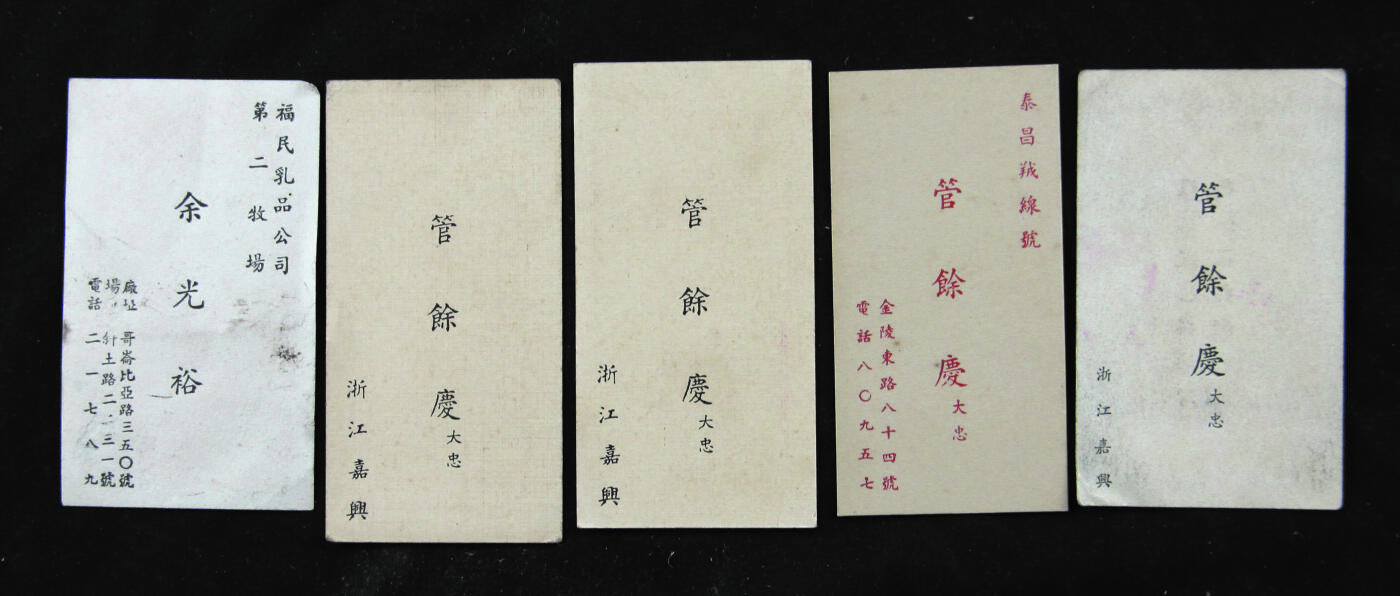 福民乳品公司
第二牧場
余光裕
廠址 哥崙比亞路三五〇號
場〃 斜土路二三一號
電話 二一七八九
管餘慶
大忠
浙江嘉興
管餘慶
大忠
浙江嘉興
泰昌羢線號
管餘慶
大忠
金陵東路八十四號
電話八〇九五七
管餘慶
大忠
浙江嘉興